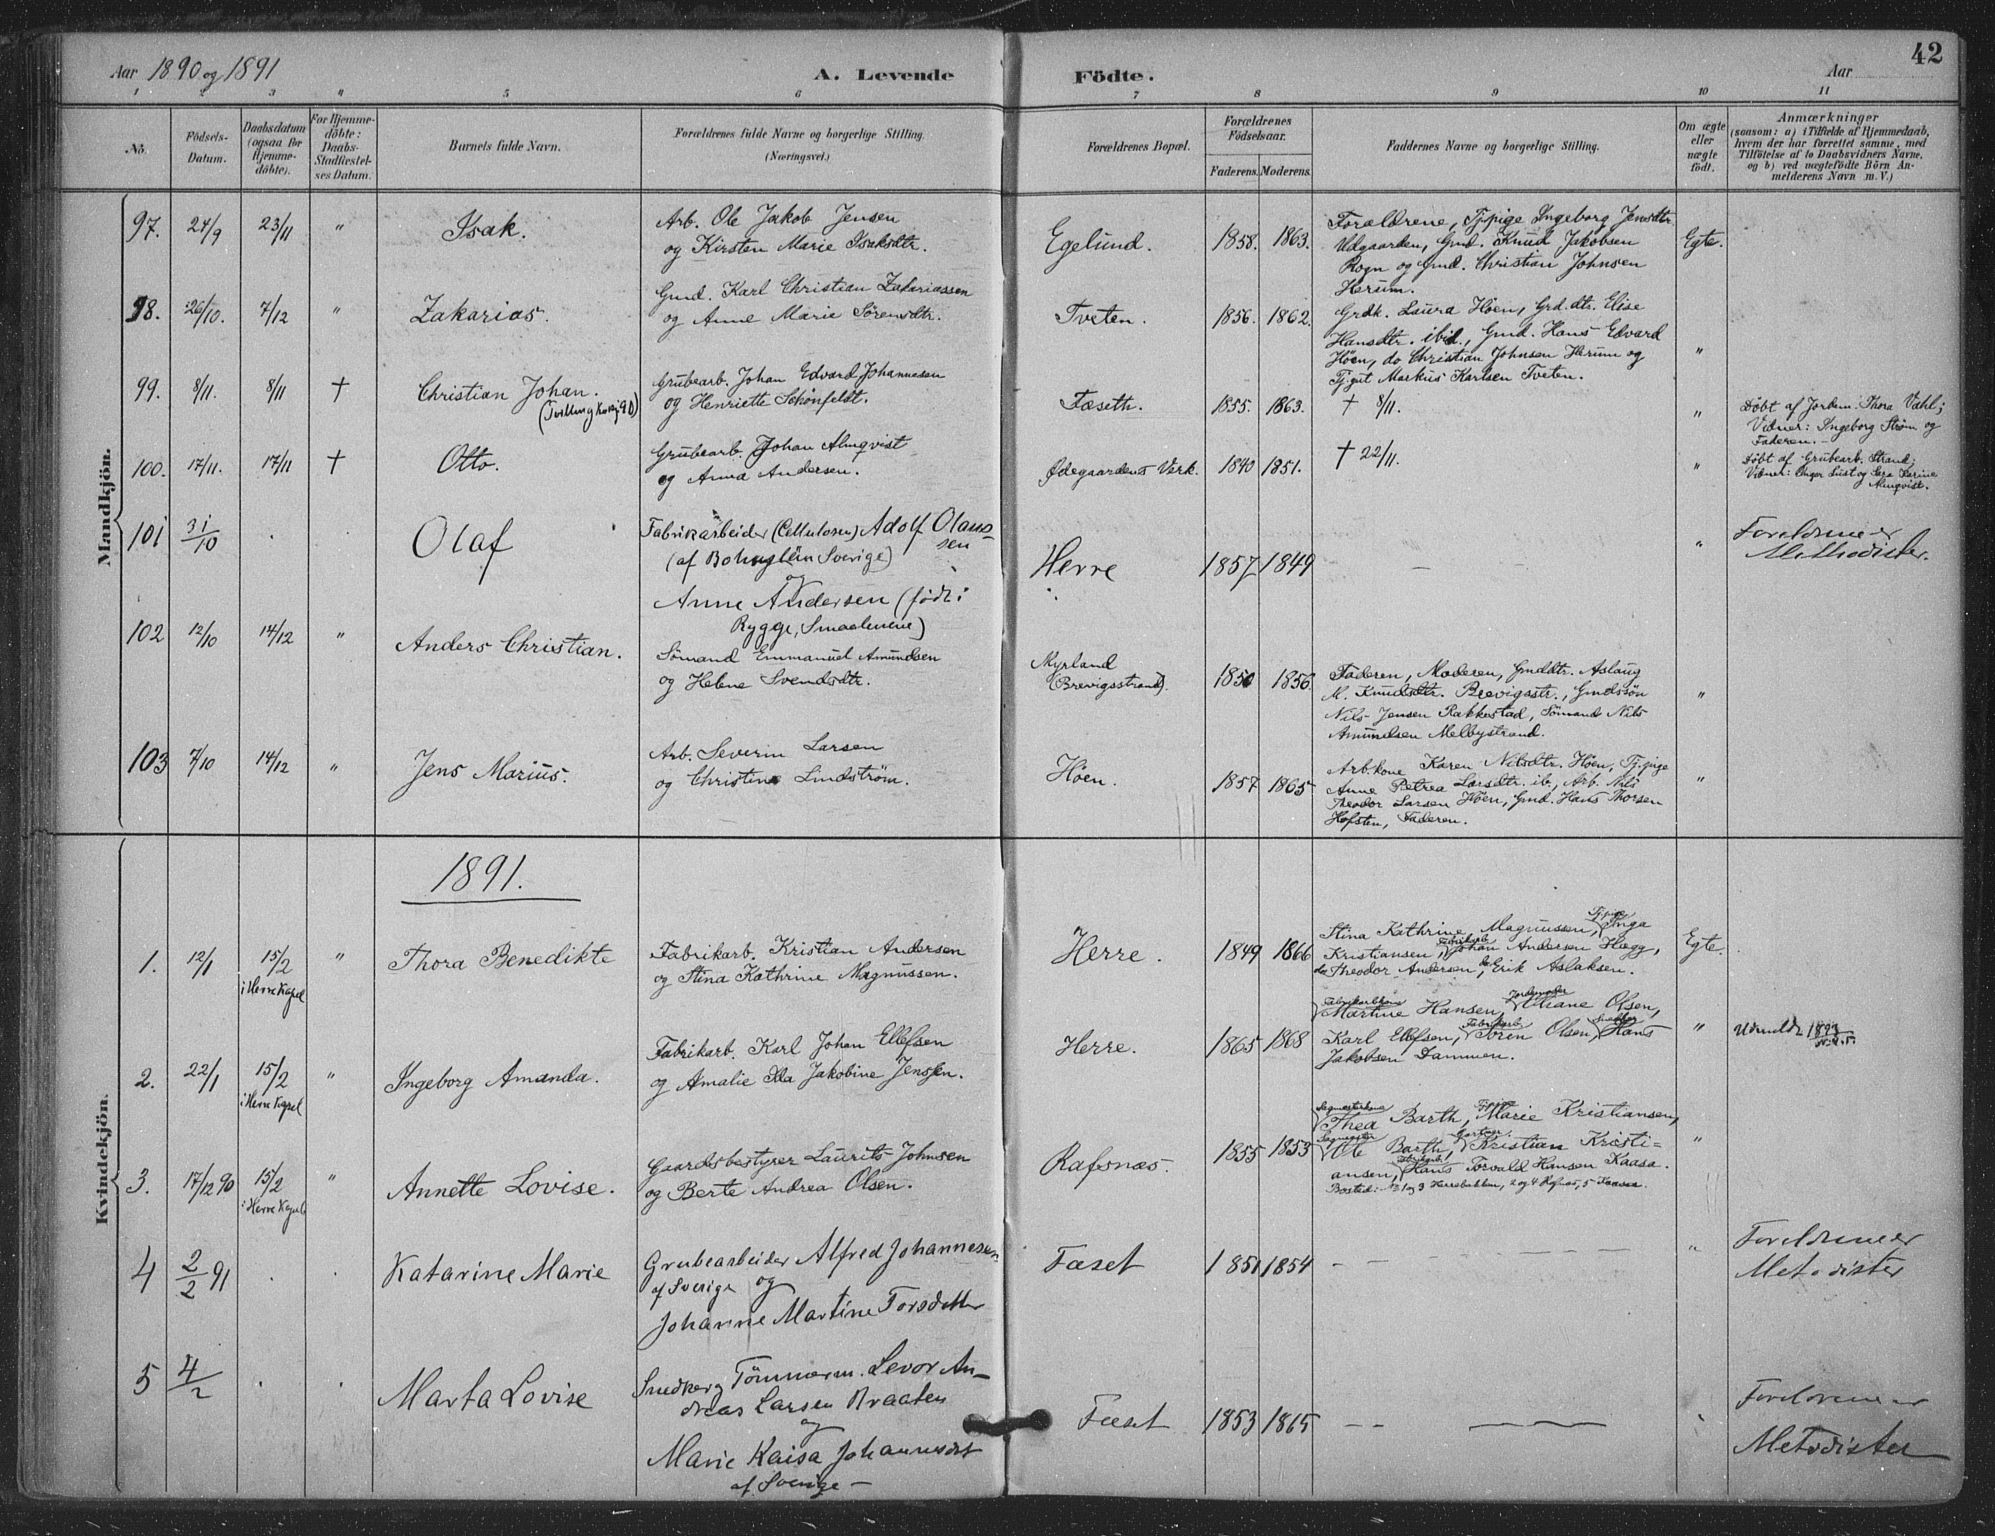 42
Aar 1890 og 1891
A. Levende Födte.
Aar
1 2 3 4 5 6 7 8 9 10 11
No.
Födsels-Datum.
Daabsdatum (ogsaa for Hjemme-döbte).
For Hjemme-döbte: Daabs-Stadfæstel-ses Datum.
Barnets fulde Navn.
Forældrenes fulde Navne og borgerlige Stilling. (Næringsvei.)
Forældrenes Bopæl.
Forældrenes Födselsaar.
Faderens. Moderens.
Faddernes Navne og borgerlige Stilling.
Om ægte eller uægte födt.
Anmærkninger
(saasom: a) i Tilfælde af Hjemmedaab, hvem der har forrettet samme, med Tilföielse af to Daabsvidners Navne, og b) ved uægtefödte Börn An-melderens Navn m. V.)
Mandkjön.
97. 24/9 23/11 " Isak.
Arb. Ole Jakob Jensen
og Kirsten Marie Isaksdtr.
Egelund. 1858. 1863.
Forældrene, Tj.pige Ingeborg Jensdtr
Udgaarden, Gmd. Knud Jakobsen
Rogn og Gmd. Christian Johnsen
Herum.
Egte.
98. 26/10. 7/12 " Zakarias.
Gmd. Karl Christian Zakariassen
og Anne Marie Sörensdtr.
Tveten. 1856. 1862.
Grdk. Laura Höen, Grd.dtr. Elise
Hansdtr. ibid., Gmd. Hans Edvard
Höen, do Christian Johnsen Herum og
Tj.gut Markus Karlsen Tveten.
"
99. 8/11. 8/11 † Christian Johan.
(Tvilling
Grubearb. Johan Edvard Johannesen
og Henriette Schönfeldt.
Fæseth. 1855. 1863. † 8/11.
"
Döbt af Jordm. Thora Vahl;
Vidner: Ingeborg Ström og
Faderen.
100. 17/11. 17/11 † Otto.
Grubearb. Johan Almqvist
og Anna Andersen.
Ødegaardens Verk. 1840 1851. † 22/11.
"
Döbt af Grubearb. Strand;
Vidner: Inger Lust og Sara Karine
Almqvist.
101 31/10 . . Olaf
Fabrikarbeider (Cellulosen) Adolf Olaus-
sen
(af Bohuslän Sverige)
og
Anne Andersen (födt i
Rygge, Smaalenene)
Herre 1857 1849 — —
"
Foreldrene er
Methodister.
102 12/10 14/12 " Anders Christian.
Sömand Emmanuel Amundsen
og Helene Svendsdtr.
Myrland
(Brevigsstrand). 1850 1856.
Faderen, Moderen, Gmddtr. Aslaug
M. Knudsdtr. Brevigsstr., Gmdssön
Nils Jensen Rakkestad, Sömand Nils
Amundsen Melbystrand.
"
103 7/10 14/12 " Jens Marius.
Arb. Severin Larsen
og Christine Lindström.
Höen. 1857 1865
Arb.kone Karen Nilsdtr. Höen, Tj.pige
Anne Petrea Larsdtr. ib., Arb. Nils
Theodor Larsen Höen, Gmd. Hans Thorsen
Hofsten, Faderen.
"
Kvindekjön.
1891.
1. 12/1 15/2 " Thora Benedikte
i Herre Kapel
Fabrikarb. Kristian Andersen
og Stina Kathrine Magnussen.
Herre. 1849 1866
Stina Kathrine Magnussen, Tj.pige Inga
Kristiansen, Fabrikarb. Johan Andersen Hægg,
do Theodor Andersen, do Erik Aslaksen.
Egte.
2. 22/1 15/2 " Ingeborg Amanda.
i Herre Kapel
Fabrikarb. Karl Johan Ellefsen
og Amalie Ida Jakobine Jensen.
Herre. 1865 1868
Fabrikarb.kone Martine Hansen, Jordemoder Thiane Olsen,
Karl Ellefsen, Fabrikarb. Sören Olsen, Snekker Hans
Jakobsen Dammen.
"
Udmeldt
3. 17/12 90 15/2 " Annette Lovise.
i Herre Kapel
Gaardsbestyrer Laurits Johnsen
og Berte Andrea Olsen.
Rafsnæs. 1855 1853
Sagmesterkone Thea Barth, Tj.pige Marie Kristiansen,
Sagmester Ole Barth, Kristian Kristi-
ansen, Fabrikarb. Hans Torvald Hansen Kaasa.
Bosted: No 1 og 3 Herrebakken, 2 og 4 Rafnæs, 5 Kaasa
"
4 2/2 91 . . Katarine Marie
Grubearbeider Alfred Johannesen
af Sverige og
Johanne Martine Torsdatter
Fæset 1851 1854 — —
"
Foreldrene er
Metodister
5 4/2 . . Marta Lovise
Snedker og Tömmerm. Levor An-
dreas Larsen Braaten
og
Marie Kaisa Johannesdat
af Sverige —
Fæset 1853 1865 — —
Foreldrene er
Metodister